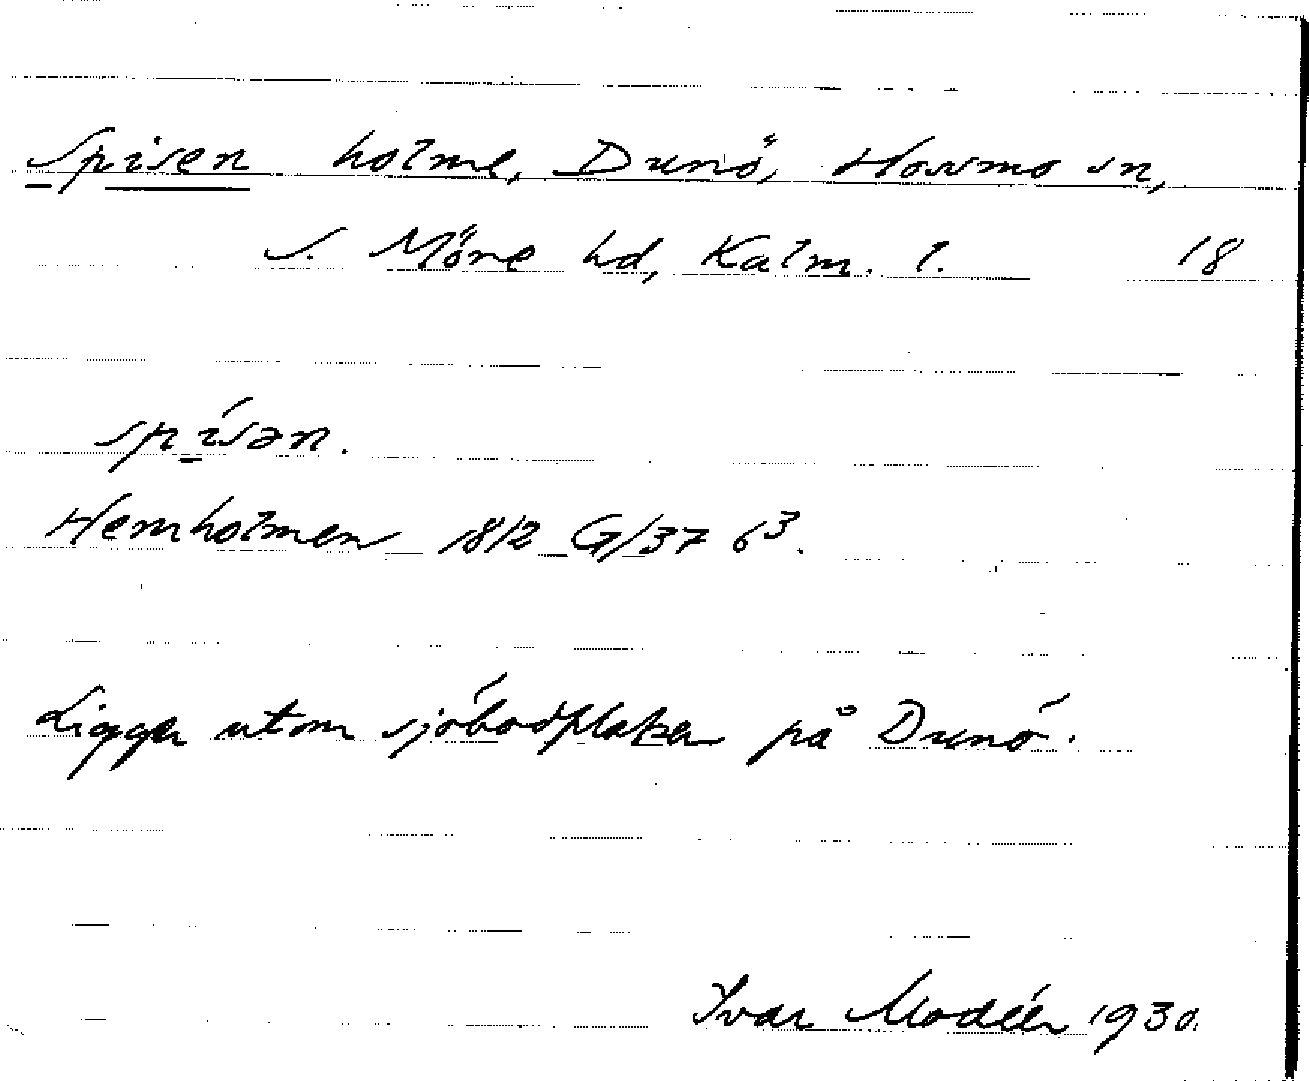 Spisen holme, Dunö, Hossmo sn,
S. Möre hd, Kalm. l. 18
spí̱sən.
Hemholmen 1812 G/37 6³.
Ligger utom sjöbodplatsen på Dunö.
Ivar Modéer 1930.